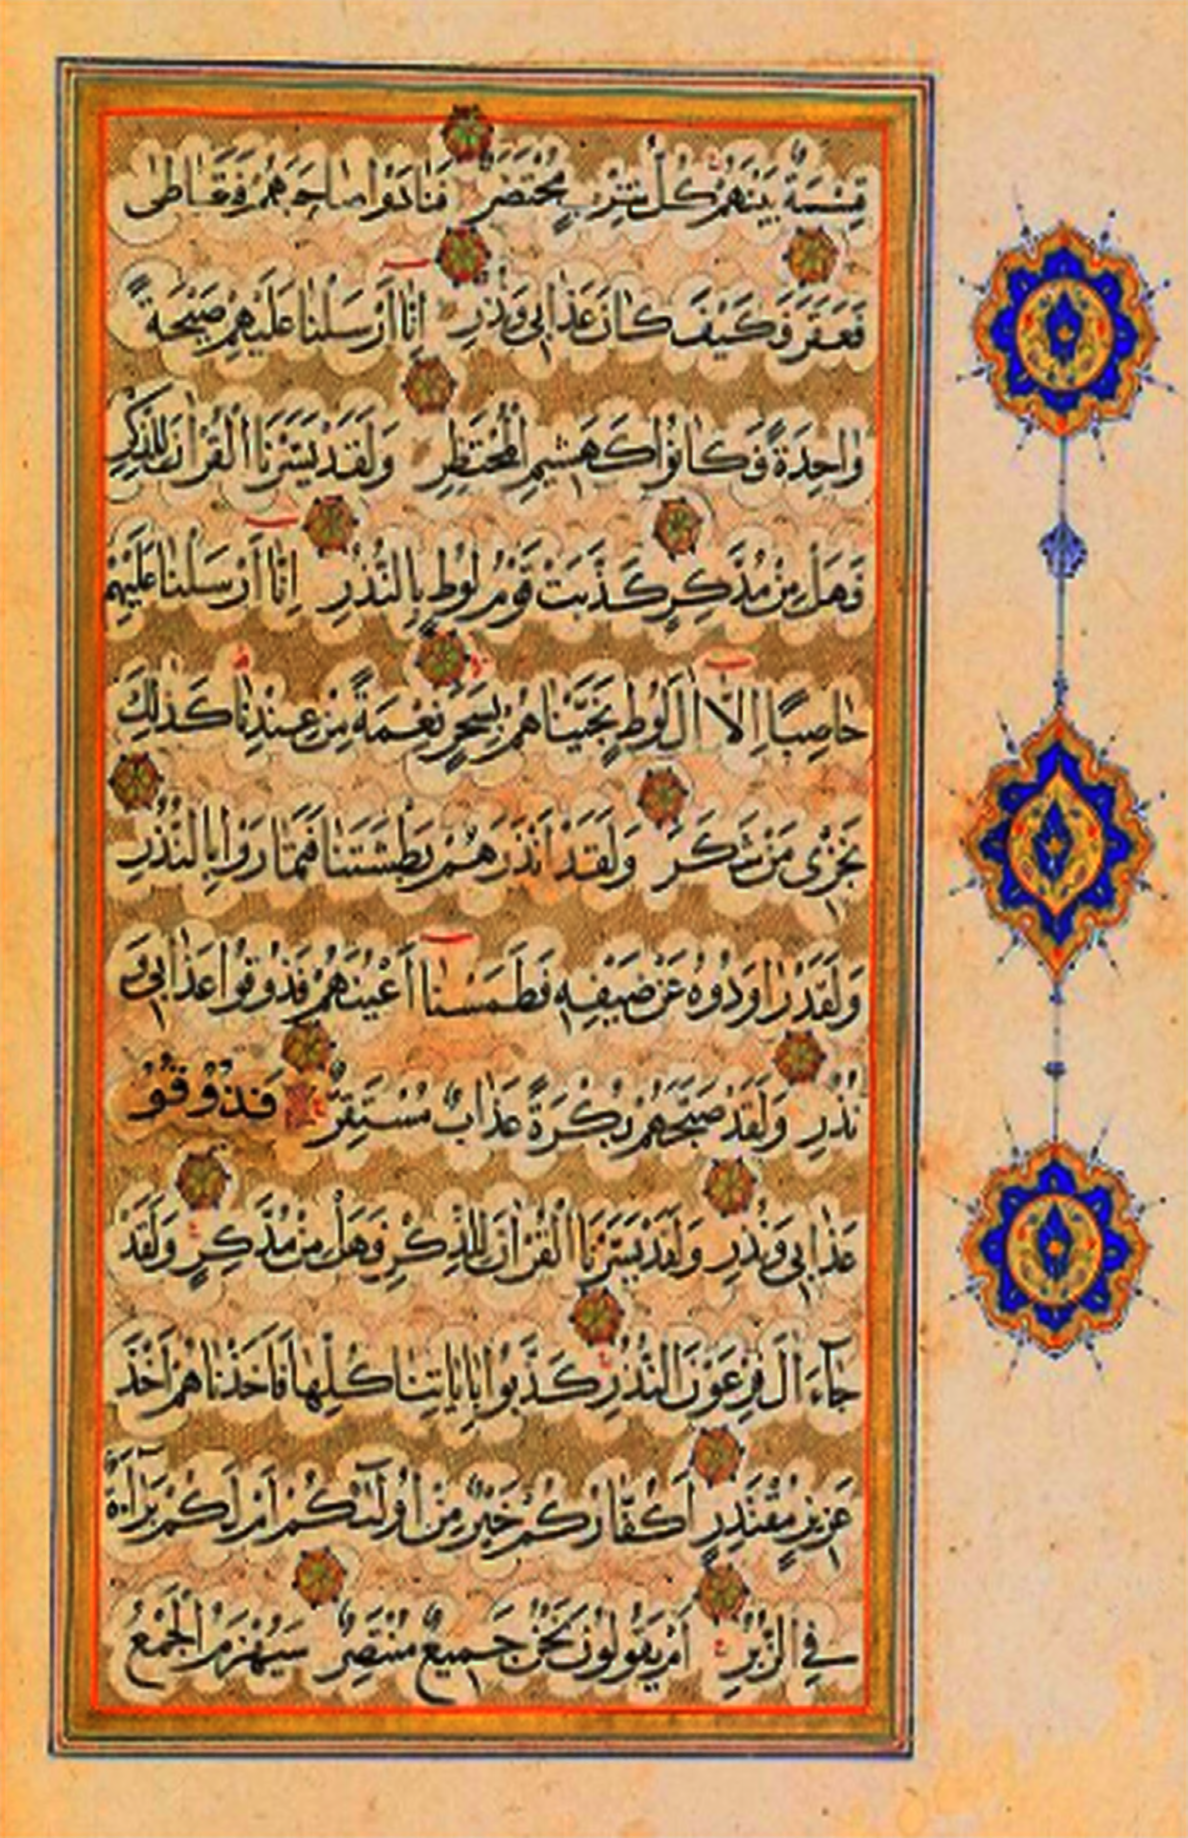 قِسْمَةٌ بَيْنَهُمْ كُلُّ شِرْبٍ مُحْتَضَرٌ فَنَادَوْا صَاحِبَهُمْ فَتَعَاطٰى
فَعَقَرَ فَكَيْفَ كَانَ عَذَابِى وَنُذُرِ اِنَّا اَرْسَلْنَا عَلَيْهِمْ صَيْحَةً
وَاحِدَةً فَكَانُوا كَهَشِيمِ الْمُحْتَظِرِ وَلَقَدْ يَسَّرْنَا الْقُرْاٰنَ لِلذِّكْرِ
فَهَلْ مِنْ مُدَّكِرٍ كَذَّبَتْ قَوْمُ لُوطٍ بِالنُّذُرِ اِنَّا اَرْسَلْنَا عَلَيْهِمْ
حَاصِبًا اِلَّا اٰلَ لُوطٍ نَجَّيْنَاهُمْ بِسَحَرٍ نِعْمَةً مِنْ عِنْدِنَا كَذٰلِكَ
نَجْزِى مَنْ شَكَرَ وَلَقَدْ اَنْذَرَهُمْ بَطْشَتَنَا فَتَمَارَوْا بِالنُّذُرِ
وَلَقَدْ رَاوَدُوهُ عَنْ ضَيْفِهِ فَطَمَسْنَا اَعْيُنَهُمْ فَذُوقُوا عَذَابِى وَ
نُذُرِ وَلَقَدْ صَبَّحَهُمْ بُكْرَةً عَذَابٌ مُسْتَقِرٌّ فَذُوقُو
عَذَابِى وَنُذُرِ وَلَقَدْ يَسَّرْنَا الْقُرْاٰنَ لِلذِّكْرِ فَهَلْ مِنْ مُدَّكِرٍ وَلَقَدْ
جَآءَ اٰلَ فِرْعَوْنَ النُّذُرُ كَذَّبُوا بِاٰيَاتِنَا كُلِّهَا فَاَخَذْنَاهُمْ اَخْذَ
عَزِيزٍ مُقْتَدِرٍ اَكُفَّارُكُمْ خَيْرٌ مِنْ اُولٰٓئِكُمْ اَمْ لَكُمْ بَرَآءَةٌ
فِى الزُّبُرِ اَمْ يَقُولُونَ نَحْنُ جَمِيعٌ مُنْتَصِرٌ سَيُهْزَمُ الْجَمْعُ